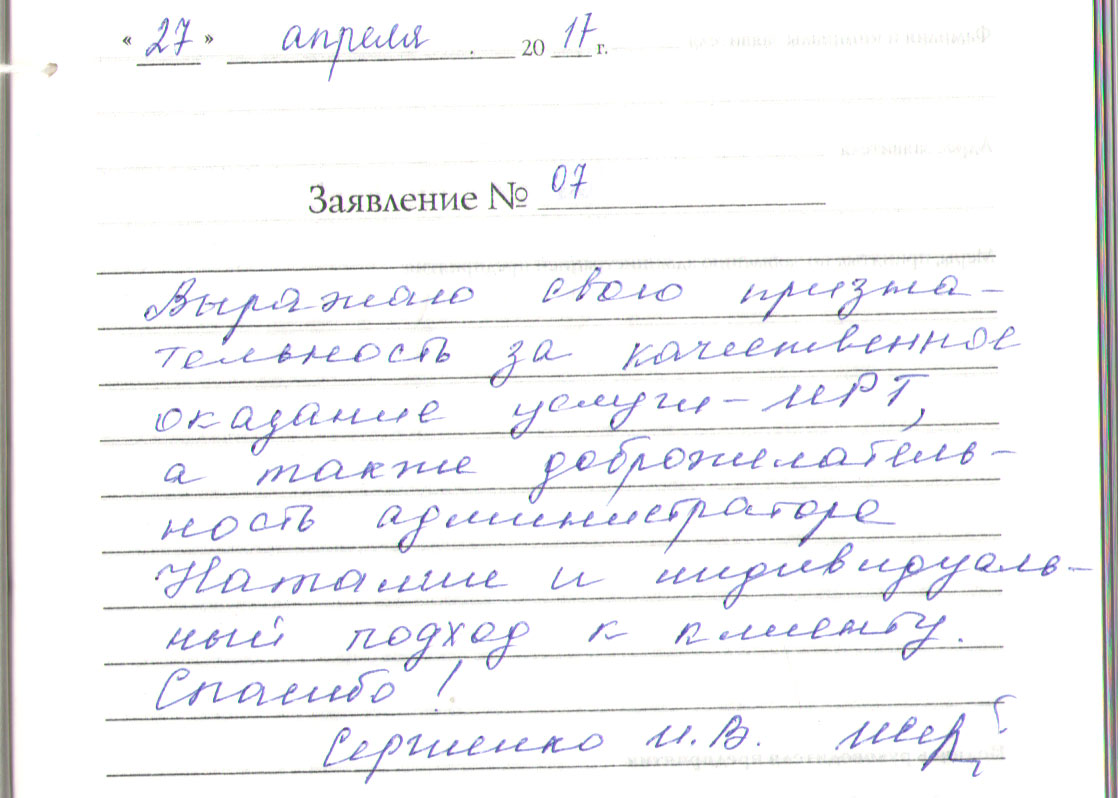 « 27 » апреля 20 17 г.
Заявление № 07
Выражаю свою призна-
тельность за качественное
оказание услуги - МРТ,
а также доброжелатель-
ность администратора
Наталие и индивидуаль-
ный подход к клиенту.
Спасибо!
Сергиенко И.В.